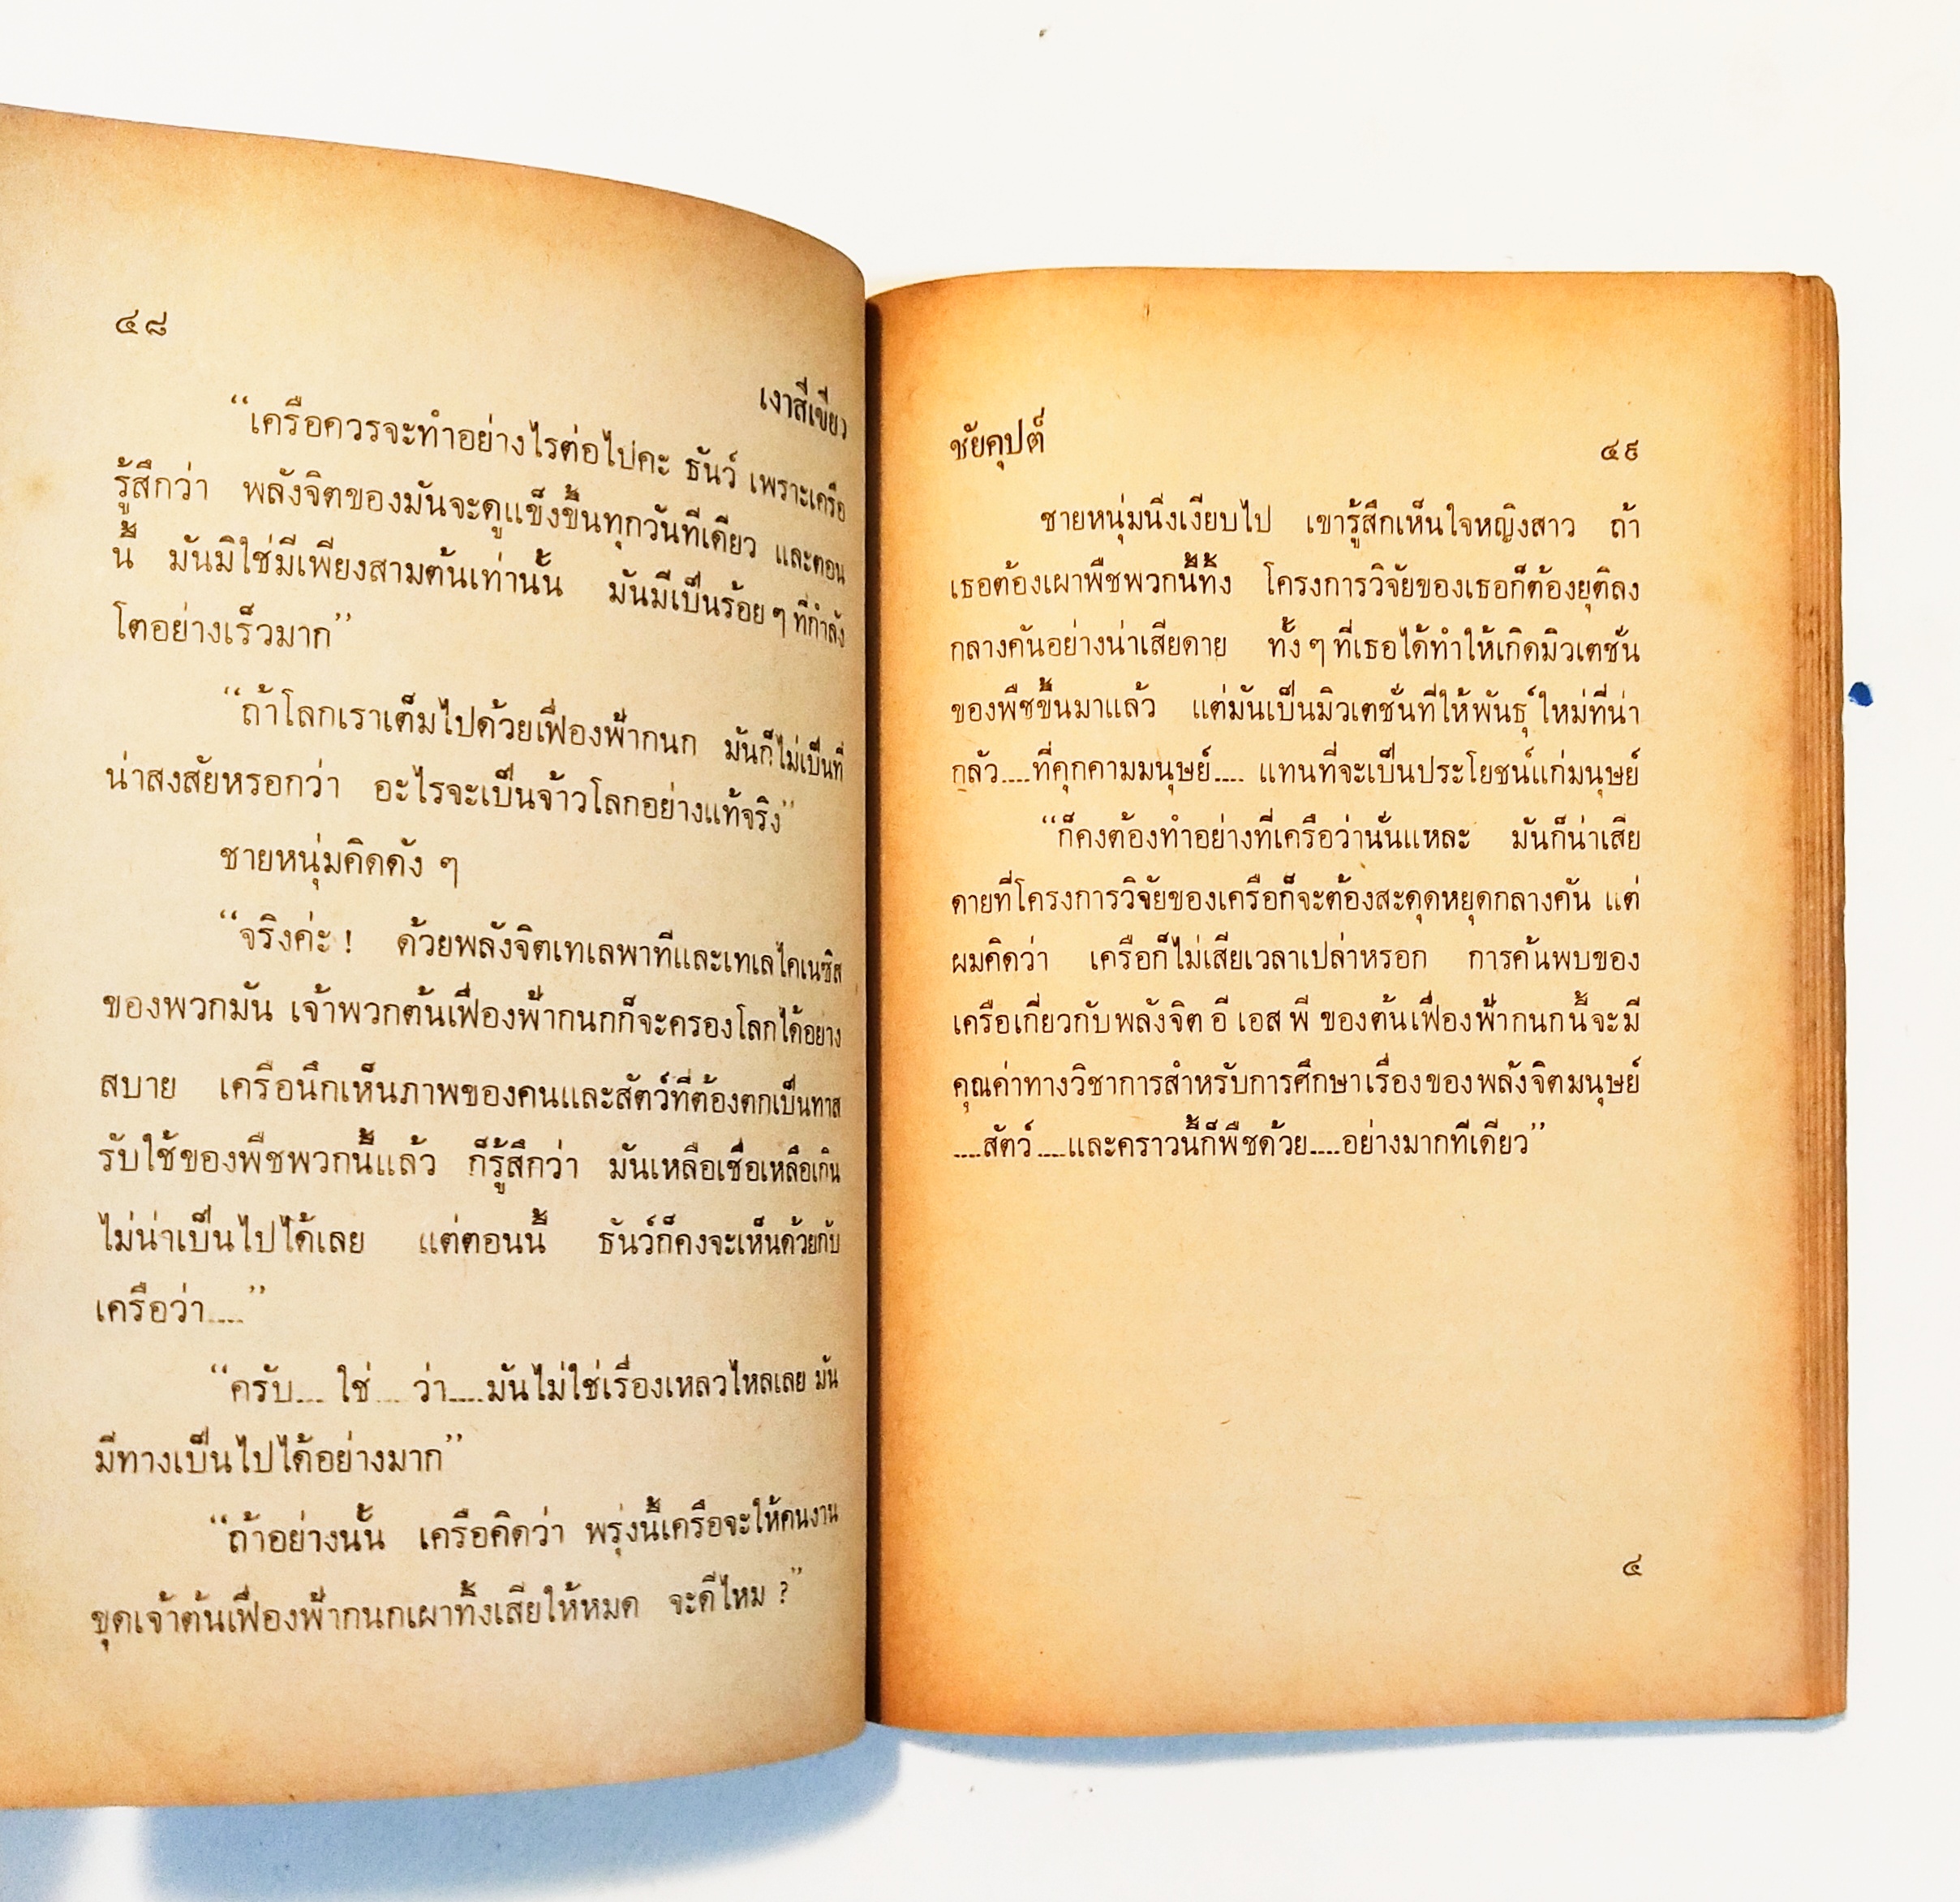 ๔๘
เงาสีเขียว
“เครือควรจะทำอย่างไรต่อไปคะ ธันว์ เพราะเครือ
รู้สึกว่า พลังจิตของมันจะดูแข็งขึ้นทุกวันทีเดียว และตอน
นี้ มันมิใช่มีเพียงสามต้นเท่านั้น มันมีเป็นร้อยๆ ที่กำลัง
โตอย่างเร็วมาก”
“ถ้าโลกเราเต็มไปด้วยเฟื่องฟ้ากนก มันก็ไม่เป็นที่
น่าสงสัยหรอกว่า อะไรจะเป็นจ้าวโลกอย่างแท้จริง”
ชายหนุ่มคิดดัง ๆ
“จริงค่ะ ! ด้วยพลังจิตเทเลพาทีและเทเลไคเนซิส
ของพวกมัน เจ้าพวกต้นเฟื่องฟ้ากนกก็จะครองโลกได้อย่าง
สบาย เครือนึกเห็นภาพของคนและสัตว์ที่ต้องตกเป็นทาส
รับใช้ของพืชพวกนี้แล้ว ก็รู้สึกว่า มันเหลือเชื่อเหลือเกิน
ไม่น่าเป็นไปได้เลย แต่ตอนนี้ ธันว์ก็คงจะเห็นด้วยกับ
เครือว่า....”
“ครับ.... ใช่.... ว่า.....มันไม่ใช่เรื่องเหลวไหลเลย มัน
มีทางเป็นไปได้อย่างมาก”
“ถ้าอย่างนั้น เครือคิดว่า พรุ่งนี้เครือจะให้คนงาน
ขุดเจ้าต้นเฟื่องฟ้ากนกเผาทิ้งเสียให้หมด จะดีไหม ?”
ชัยคุปต์
๔๙
ชายหนุ่มนิ่งเงียบไป เขารู้สึกเห็นใจหญิงสาว ถ้า
เธอต้องเผาพืชพวกนี้ทิ้ง โครงการวิจัยของเธอก็ต้องยุติลง
กลางคันอย่างน่าเสียดาย ทั้งๆ ที่เธอได้ทำให้เกิดมิวเตชั่น
ของพืชขึ้นมาแล้ว แต่มันเป็นมิวเตชั่นที่ให้พันธุ์ใหม่ที่น่า
กลัว....ที่คุกคามมนุษย์.... แทนที่จะเป็นประโยชน์แก่มนุษย์
“ก็คงต้องทำอย่างที่เครือว่านั่นแหละ มันก็น่าเสีย
ดายที่โครงการวิจัยของเครือก็จะต้องสะดุดหยุดกลางคัน แต่
ผมคิดว่า เครือก็ไม่เสียเวลาเปล่าหรอก การค้นพบของ
เครือเกี่ยวกับพลังจิต อี เอส พี ของต้นเฟื่องฟ้ากนกนี้จะมี
คุณค่าทางวิชาการสำหรับการศึกษาเรื่องของพลังจิตมนุษย์
....สัตว์ ....และคราวนี้ก็พืชด้วย....อย่างมากทีเดียว”
๔